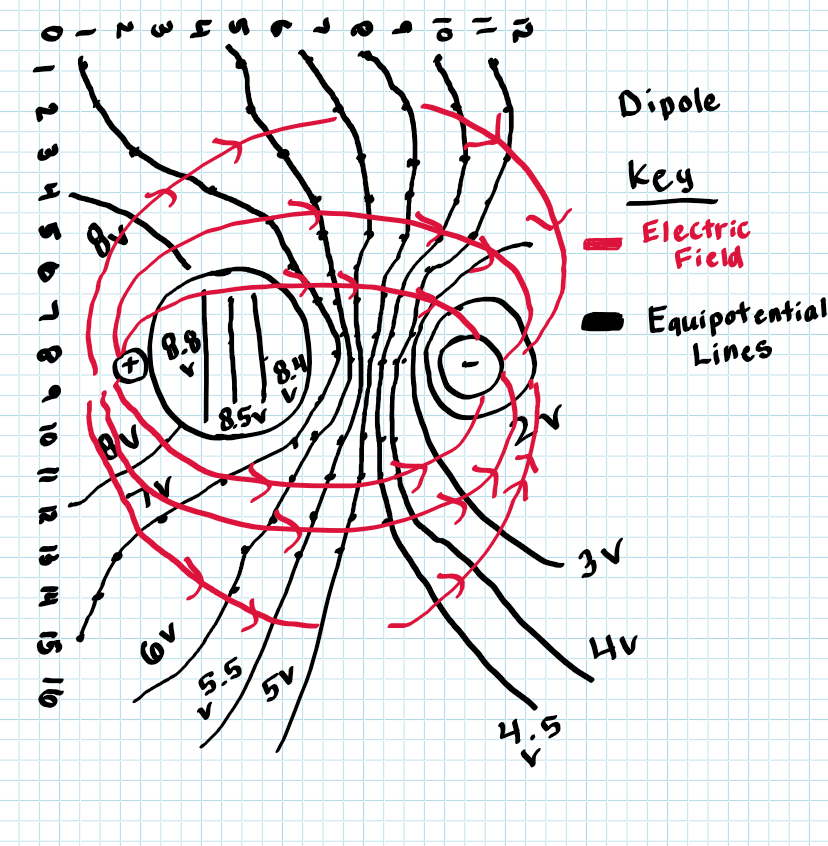 0 1 2 3 4 5 6 7 8 9 10 11 12
1
2
3
4
5
6
7
8
9
10
11
12
13
14
15
16
Dipole
Key
Electric
Field
Equipotential
Lines
8v
8.8
v
8.4
v
8.5v
+
-
8v
7v
2v
3v
4v
4.5
v
6v
5.5
v
5v